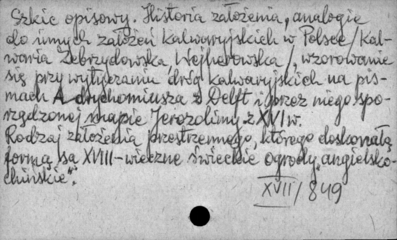 Szkic opisowy. Historia założenia, analogie
do innych założeń kalwaryjskich w Polsce /Kal-
waria Zebrzydowska Wejherowska/, wzorowanie
się przy wytyczaniu dróg kalwaryjskich na pis-
mach Adrychomiusza z Delft i przez niego spo-
rządzonej mapie Jerozolimy z XVI w.
Rodzaj założenia przestrzennego, którego doskonałą
formą są XVIII-wieczne świeckie ogrody "angielsko-
chińskie".
XVII/849